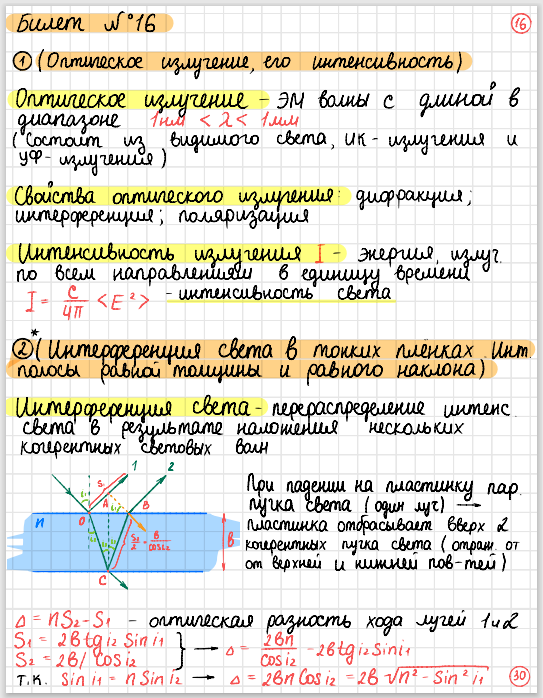 Билет №16
16
① (Оптическое излучение, его интенсивность)
Оптическое излучение - ЭМ волны с длиной в
диапазоне 1нм < λ < 1мм
(Состоит из видимого света, ИК-излучения и
УФ-излучения)
Свойства оптического излучения: дифракция;
интерференция; поляризация
Интенсивность излучения I - энергия, излуч.
по всем направлениям в единицу времени
I = c/4π <E²> - интенсивность света
②* (Интерференция света в тонких плёнках. Инт.
полосы равной толщины и равного наклона)
Интерференция света - перераспределение интенс.
света в результате наложения нескольких
когерентных световых волн
1
2
S₁
i₁
A
i₁
O
B
n
i₂
i₂
S₂/2 = в/cosi₂
в
C
При падении на пластинку пар.
пучка света (один луч) →
пластинка отбрасывает вверх 2
когерентных пучка света (отраж. от
от верхней и нижней пов-тей)
Δ = nS₂ - S₁ - оптическая разность хода лучей 1 и 2
S₁ = 2в tg i₂ Sin i₁
S₂ = 2в/ Cos i₂
→ Δ = 2вn/cos i₂ - 2в tg i₂ sin i₁
т.к. Sin i₁ = n Sin i₂ → Δ = 2вn Cos i₂ = 2в √n² - Sin² i₁
30